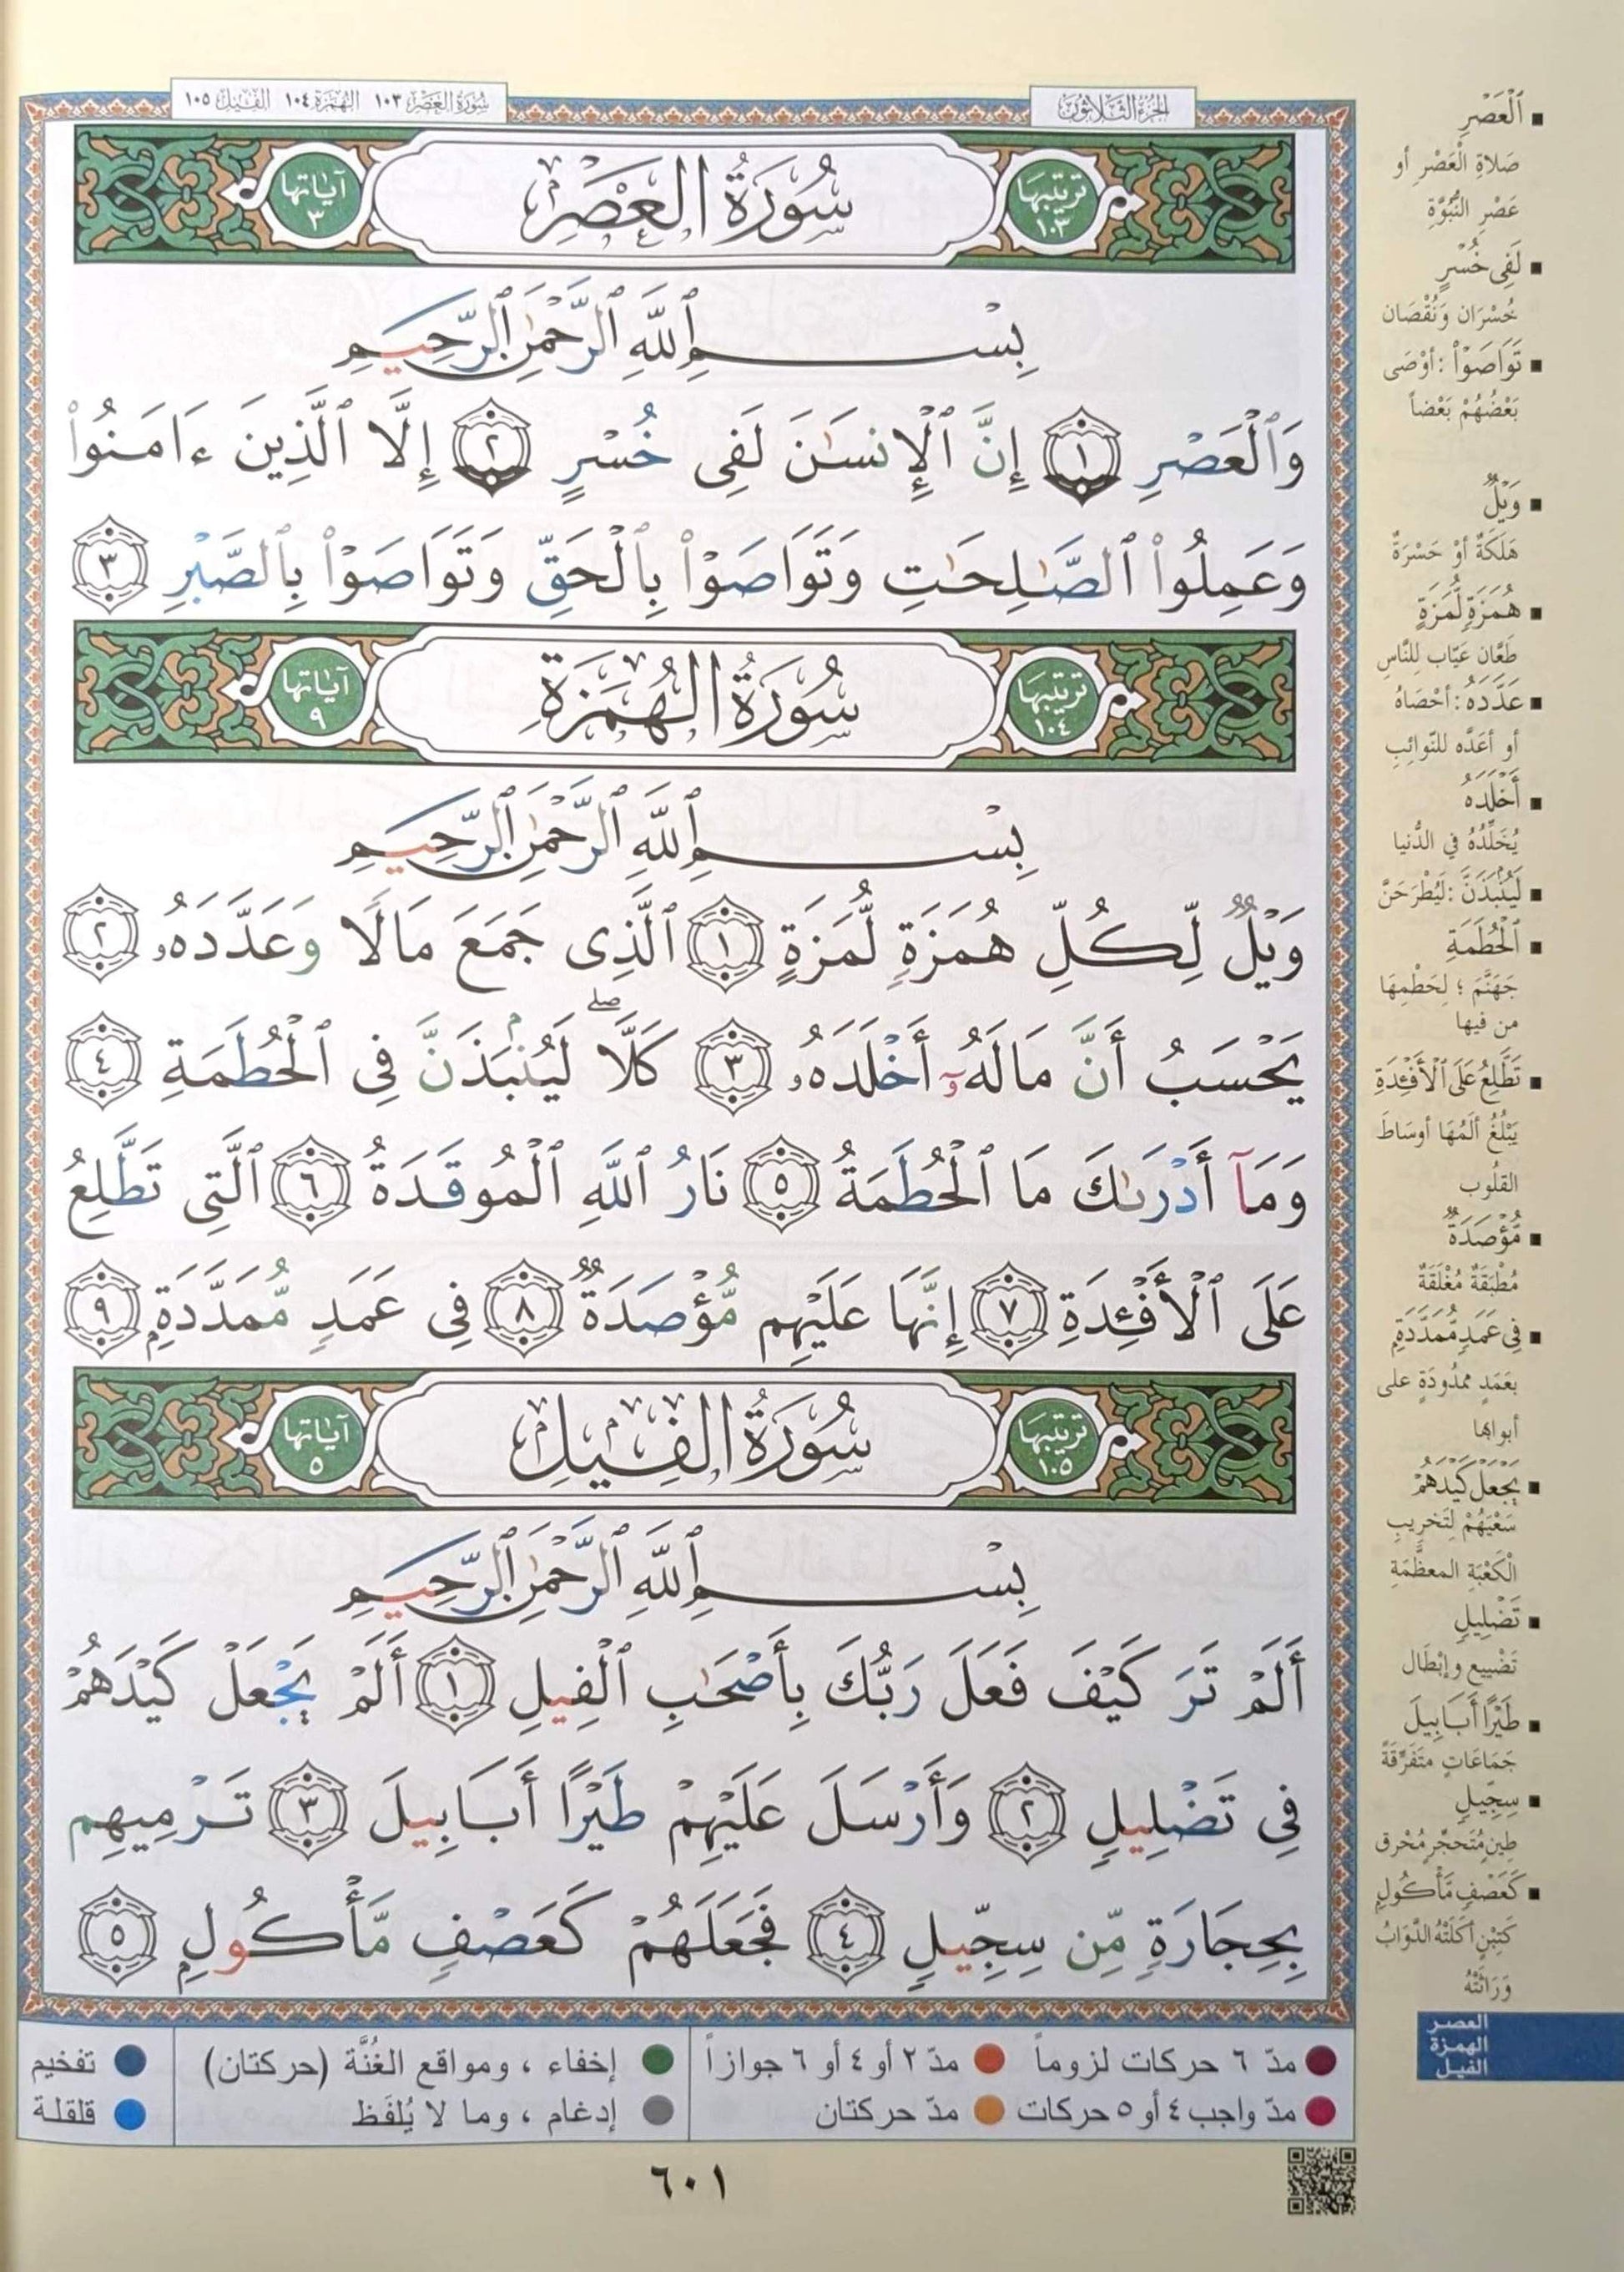 الجزء الثلاثون
سورة العصر ١٠٣ الهمزة ١٠٤ الفيل ١٠٥
ترتيبها ١٠٣
سُورَةُ العَصْرِ
آياتها ٣
بِسْمِ ٱللَّهِ ٱلرَّحْمَٰنِ ٱلرَّحِيمِ
وَٱلْعَصْرِ ١ إِنَّ ٱلْإِنسَٰنَ لَفِى خُسْرٍ ٢ إِلَّا ٱلَّذِينَ ءَامَنُوا۟
وَعَمِلُوا۟ ٱلصَّٰلِحَٰتِ وَتَوَاصَوْا۟ بِٱلْحَقِّ وَتَوَاصَوْا۟ بِٱلصَّبْرِ ٣
ترتيبها ١٠٤
سُورَةُ الهُمَزَةِ
آياتها ٩
بِسْمِ ٱللَّهِ ٱلرَّحْمَٰنِ ٱلرَّحِيمِ
وَيْلٌ لِّكُلِّ هُمَزَةٍ لُّمَزَةٍ ١ ٱلَّذِى جَمَعَ مَالًا وَعَدَّدَهُۥ ٢
يَحْسَبُ أَنَّ مَالَهُۥٓ أَخْلَدَهُۥ ٣ كَلَّا ۖ لَيُنۢبَذَنَّ فِى ٱلْحُطَمَةِ ٤
وَمَآ أَدْرَىٰكَ مَا ٱلْحُطَمَةُ ٥ نَارُ ٱللَّهِ ٱلْمُوقَدَةُ ٦ ٱلَّتِى تَطَّلِعُ
عَلَى ٱلْأَفْـِٔدَةِ ٧ إِنَّهَا عَلَيْهِم مُّؤْصَدَةٌ ٨ فِى عَمَدٍ مُّمَدَّدَةٍۭ ٩
ترتيبها ١٠٥
سُورَةُ الفِيلِ
آياتها ٥
بِسْمِ ٱللَّهِ ٱلرَّحْمَٰنِ ٱلرَّحِيمِ
أَلَمْ تَرَ كَيْفَ فَعَلَ رَبُّكَ بِأَصْحَٰبِ ٱلْفِيلِ ١ أَلَمْ يَجْعَلْ كَيْدَهُمْ
فِى تَضْلِيلٍ ٢ وَأَرْسَلَ عَلَيْهِمْ طَيْرًا أَبَابِيلَ ٣ تَرْمِيهِم
بِحِجَارَةٍ مِّن سِجِّيلٍ ٤ فَجَعَلَهُمْ كَعَصْفٍ مَّأْكُولٍۭ ٥
ٱلْعَصْرِ
صَلاةِ الْعَصْرِ أو
عَصْرِ النُّبُوَّةِ
لَفِى خُسْرٍ
خُسْرَان وَنُقْصَان
تَوَاصَوْا۟ : أوْصَى
بَعْضُهُمْ بَعْضاً
وَيْلٌ
هَلَكَةٌ أوْ حَسْرَةٌ
هُمَزَةٍ لُّمَزَةٍ
طَعَّانٍ عَيَّاب لِلنَّاسِ
عَدَّدَهُ : أحْصَاهُ
أو أعَدَّه للنّوائِبِ
أَخْلَدَهُ
يُخَلِّدُهُ في الدُّنيا
لَيُنۢبَذَنَّ : لَيُطْرَحَنَّ
ٱلْحُطَمَةِ
جَهَنَّمَ ؛ لِحَطْمِهَا
من فيها
تَطَّلِعُ عَلَى ٱلْأَفْـِٔدَةِ
يَبْلُغُ ألَمُهَا أوسَاطَ
القلُوب
مُّؤْصَدَةٌ
مُطْبَقَةٌ مُغْلَقَةٌ
فِى عَمَدٍ مُّمَدَّدَةٍۭ
بعَمَدٍ ممدُودَةٍ على
أبوابها
يَجْعَلْ كَيْدَهُمْ
سَعْيَهُمْ لِتَخرِيبِ
الْكَعْبَةِ المعظَّمَةِ
تَضْلِيلٍ
تَضْيِيع وإبْطَال
طَيْرًا أَبَابِيلَ
جَمَاعَاتٍ متَفَرِّقَةً
سِجِّيلٍ
طِين مُتَحَجِّرٍ مُحْرق
كَعَصْفٍ مَّأْكُولٍ
كَتِبْنٍ أكَلَتْهُ الدَّوَابُّ
وَرَاثَتْهُ
العصر
الهمزة
الفيل
مدّ ٦ حركات لزوماً
مدّ ٢ أو ٤ أو ٦ جوازاً
إخفاء ، ومواقع الغُنَّة (حركتان)
تفخيم
مدّ واجب ٤ أو ٥ حركات
مدّ حركتان
إدغام ، وما لا يُلفَظ
قلقلة
٦٠١